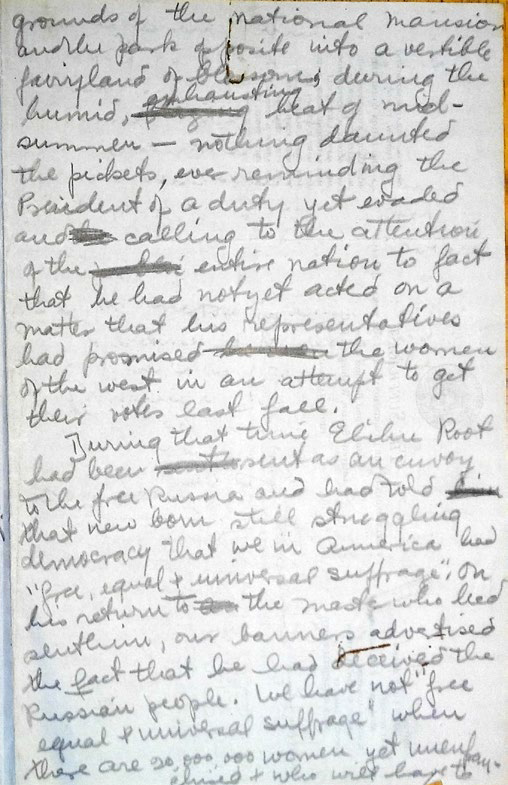 grounds of the national mansion
and the park opposite into a vertible
fairyland of blossoms; during the
humid, exhausting heat of mid-
summer — nothing daunted
the pickets, ever reminding the
President of a duty yet evaded
and calling to the attention
of the entire nation to fact
that he had not yet acted on a
matter that his representatives
had promised the women
of the west in an attempt to get
their votes last fall.
During that time Elihu Root
had been sent as an envoy
to the free Russia and had told
that new born still struggling
democracy that we in America had
"free, equal & universal suffrage"; on
his return to the master who had
sent him, our banners advertised
the fact that he had deceived the
Russian people. We have not "free
equal & universal suffrage" when
there are 20,000,000 women yet unenfran-
chised & who will have to